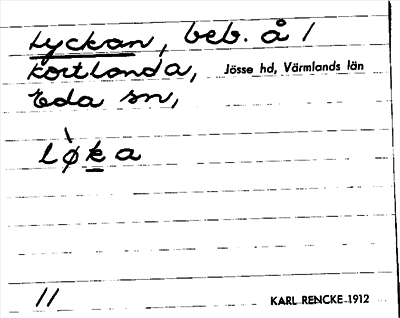 Lyckan, beb. å /
Kortlanda, Jösse hd, Värmlands län
Eda sn,
lø̀ḵa
11
KARL RENCKE 1912